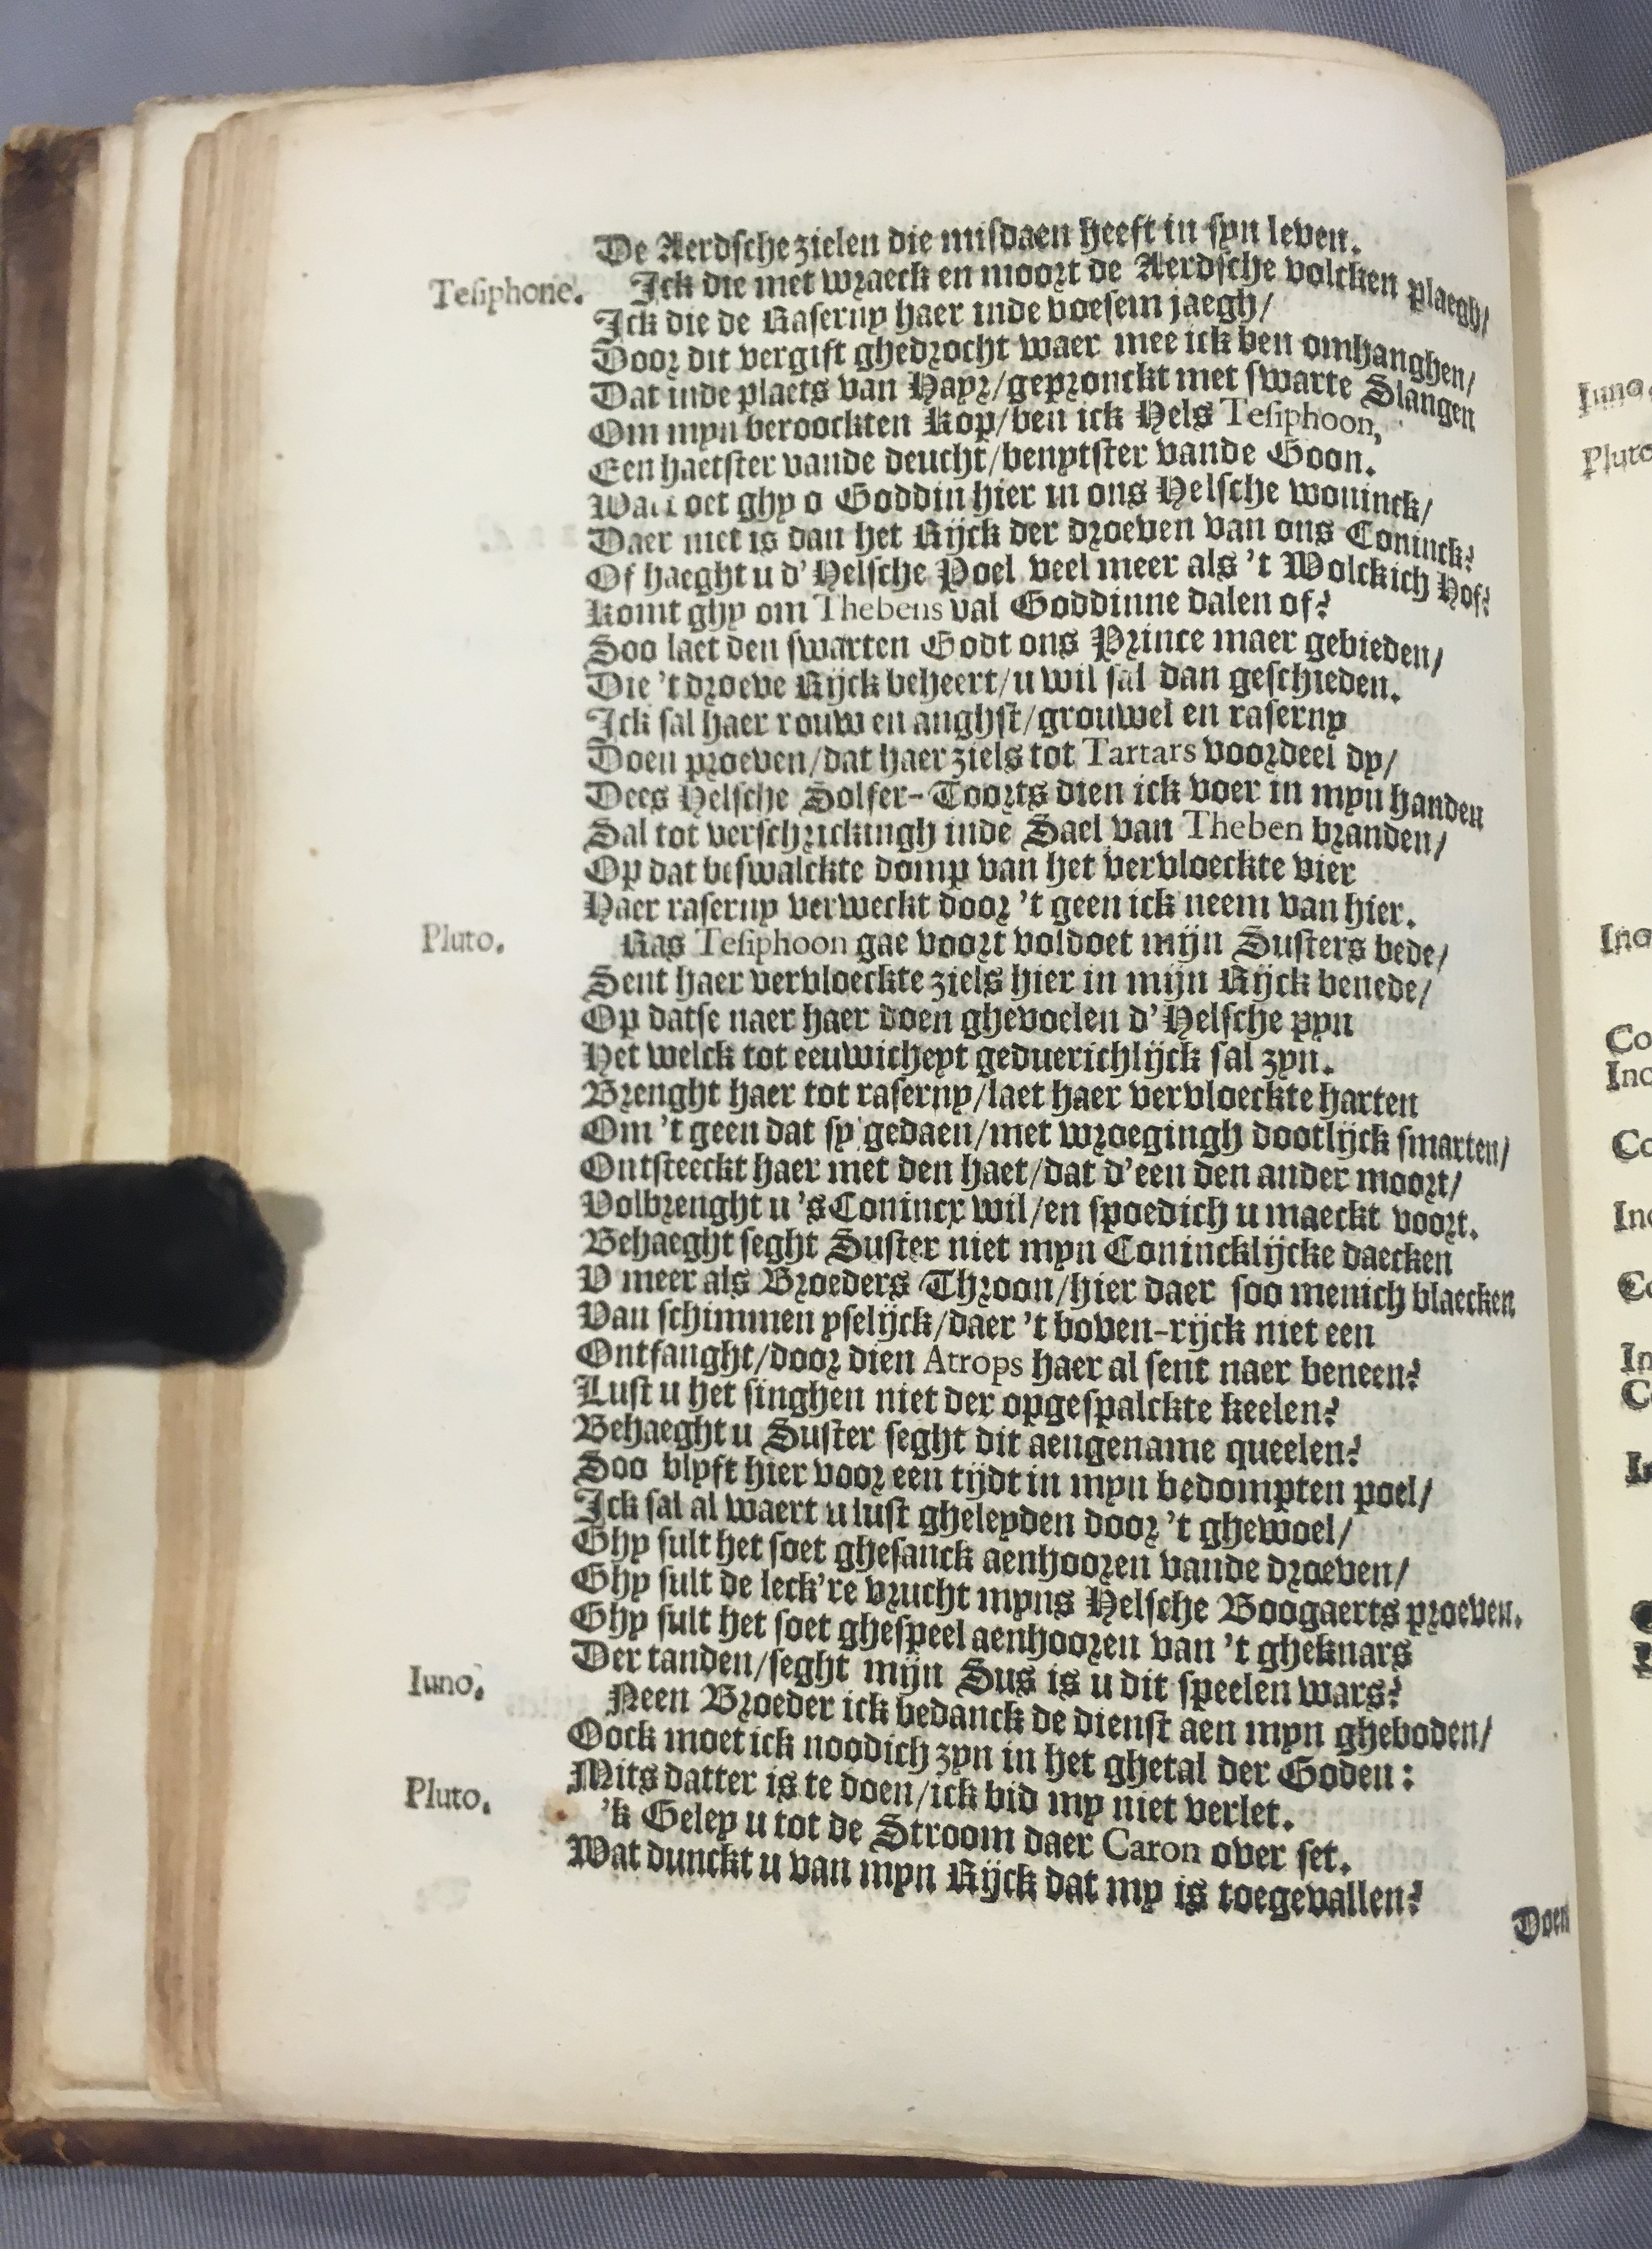 De Aerdsche zielen die misdaen heeft in syn leven.
Tesiphone. Ick die met wraeck en moort de Aerdsche volcken plaegh/
Ick die de Raserny haer inde boesem jaegh/
Door dit vergift ghedrocht waer mee ick ben omhanghen/
Dat inde plaets van Hayr/gepronckt met swarte Slangen
Om myn beroockten Kop/ben ick Hels Tesiphoon,
Een haetster vande deucht/benytster vande Goon.
Wat oet ghy o Goddin hier in ons Helsche woninck/
Daer niet is dan het Rijck der droeven van ons Coninck?
Of haeght u d'Helsche Poel veel meer als 't Wolckich Hof?
Komt ghy om Thebens val Goddinne dalen of?
Soo laet den swarten Godt ons Prince maer gebieden/
Die 't droeve Rijck beheert/u wil sal dan geschieden.
Ick sal haer rouw en anghst/grouwel en raserny
Doen proeven/dat haer ziels tot Tartars voordeel dy/
Dees Helsche Solfer-Toorts dien ick voer in myn handen
Sal tot verschrickingh inde Sael van Theben branden/
Op dat beswalckte domp van het vervloeckte vier
Haer raserny verweckt door 't geen ick neem van hier.
Pluto. Ras Tesiphoon gae voort voldoet mijn Susters bede/
Sent haer vervloeckte ziels hier in mijn Rijck benede/
Op datse naer haer doen ghevoelen d'Helsche pyn
Het welck tot eeuwicheyt geduerichlijck sal zyn.
Brenght haer tot raserny/laet haer vervloeckte harten
Om 't geen dat sy gedaen/met wroegingh dootlijck smarten/
Ontsteeckt haer met den haet/dat d'een den ander moort/
Volbrenght u 's Conincx wil/en spoedich u maeckt voort.
Behaeght seght Suster niet myn Conincklijcke daecken
V meer als Broeders Throon/hier daer soo menich blaecken
Van schimmen yselijck/daer 't boven-rijck niet een
Ontfanght/door dien Atrops haer al sent naer beneen?
Lust u het singhen niet der opgespalckte keelen?
Behaeght u Suster seght dit aengename queelen?
Soo blyft hier voor een tijdt in myn bedompten poel/
Ick sal al waert u lust gheleyden door 't ghewoel/
Ghy sult het soet ghesanck aenhooren vande droeven/
Ghy sult de leck're vrucht myns Helsche Boogaerts proeven.
Ghy sult het soet ghespeel aenhooren van 't gheknars
Der tanden/seght mijn Sus is u dit speelen wars?
Iuno. Neen Broeder ick bedanck de dienst aen myn gheboden/
Oock moet ick noodich zyn in het ghetal der Goden:
Mits datter is te doen/ick bid my niet verlet.
Pluto. 'k Geley u tot de Stroom daer Caron over set.
Wat dunckt u van myn Rijck dat my is toegevallen?
Doen
Iuno.
Pluto
Ino
Co
Ino
Co
Ino
Co
In
Co